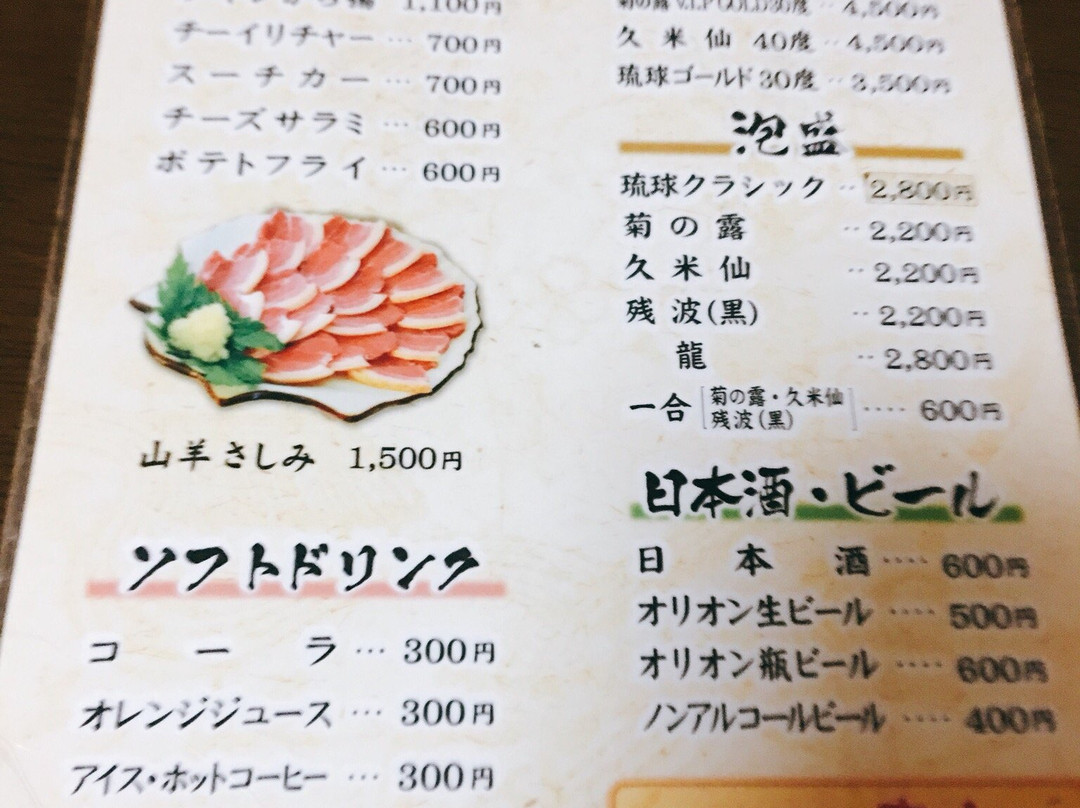 1,100円
チーイリチャー … 700円
スーチカー … 700円
チーズサラミ … 600円
ポテトフライ … 600円
山羊さしみ 1,500円
ソフトドリンク
コーラ … 300円
オレンジジュース … 300円
アイス・ホットコーヒー … 300円
菊の露 V.I.P GOLD 30度 ‥ 4,500円
久米仙 40度 ‥ 4,500円
琉球ゴールド 30度 ‥ 3,500円
泡盛
琉球クラシック ‥ 2,800円
菊の露 ‥ 2,200円
久米仙 ‥ 2,200円
残波(黒) ‥ 2,200円
龍 ‥ 2,800円
一合 [菊の露・久米仙
残波(黒)] ‥‥ 600円
日本酒・ビール
日本酒 ‥‥ 600円
オリオン生ビール ‥‥ 500円
オリオン瓶ビール ‥‥ 600円
ノンアルコールビール ‥‥ 400円